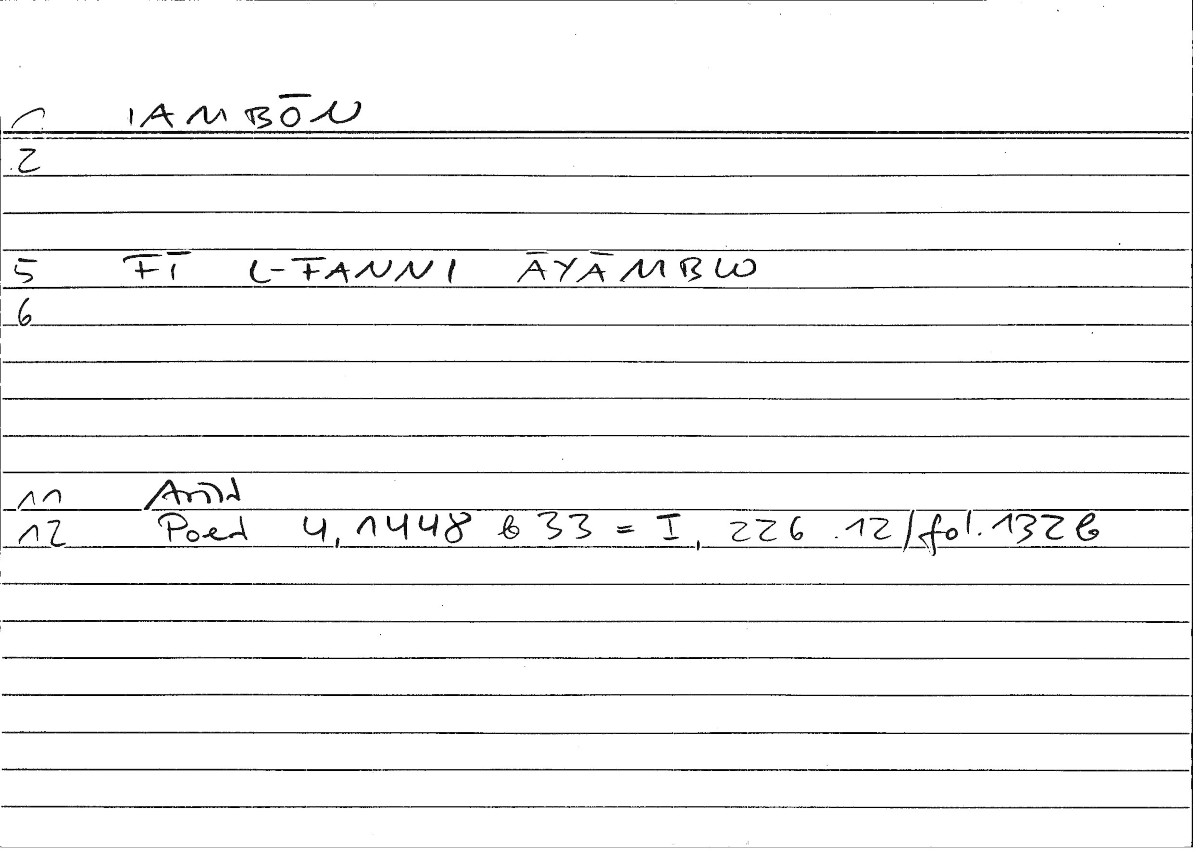 1 IAMBŌN
2
5 FĪ L-FANNI ĀYĀMBW
6
11 Arist
12 Poet 4, 1448 b 33 = I, 226.12/fol. 132b